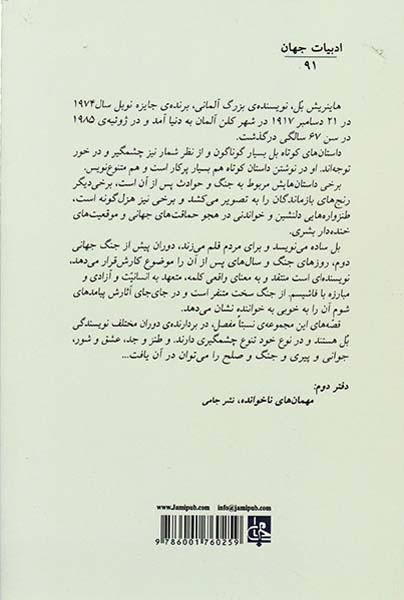 ادبیات جهان
۹۱
هاینریش بُل، نویسنده‌ی بزرگ آلمانی، برنده‌ی جایزه نوبل سال ۱۹۷۴
در ۲۱ دسامبر ۱۹۱۷ در شهر کلن آلمان به دنیا آمد و در ژوئیه‌ی ۱۹۸۵
در سن ۶۷ سالگی درگذشت.
داستان‌های کوتاه بل بسیار گوناگون و از نظر شمار نیز چشمگیر و در خور
توجه‌اند. او در نوشتن داستان کوتاه هم بسیار پرکار است و هم متنوع‌نویس.
برخی داستان‌هایش مربوط به جنگ و حوادث پس از آن است، برخی‌دیگر
رنج‌های بازماندگان را به تصویر می‌کشد و برخی نیز هزل‌گونه است،
طنزواره‌هایی دلنشین و خواندنی در هجو حماقت‌های جهانی و موقعیت‌های
خنده‌دار بشری.
بل ساده می‌نویسد و برای مردم قلم می‌زند، دوران پیش از جنگ جهانی
دوم، روزهای جنگ و سال‌های پس از آن را موضوع کارش قرار می‌دهد،
نویسنده‌ای است منتقد و به معنای واقعی کلمه، متعهد به انسانیّت و آزادی و
مبارزه با فاشیسم. از جنگ سخت متنفر است و در جای‌جای آثارش پیامدهای
شوم آن را به خوبی به خواننده نشان می‌دهد.
قصّه‌های این مجموعه‌ی نسبتاً مفصل، در بردارنده‌ی دوران مختلف نویسندگی
بُل هستند و در نوع خود تنوع چشمگیری دارند. و طنز و جد، عشق و شور،
جوانی و پیری و جنگ و صلح را می‌توان در آن یافت...
دفتر دوم:
مهمان‌های ناخوانده، نشر جامی
www.Jamipub.com info@jamipub.com
9 786001 760259